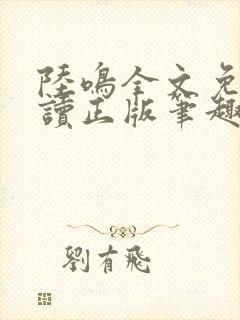 陸鳴全文免
讀正版筆趣
劉有飛